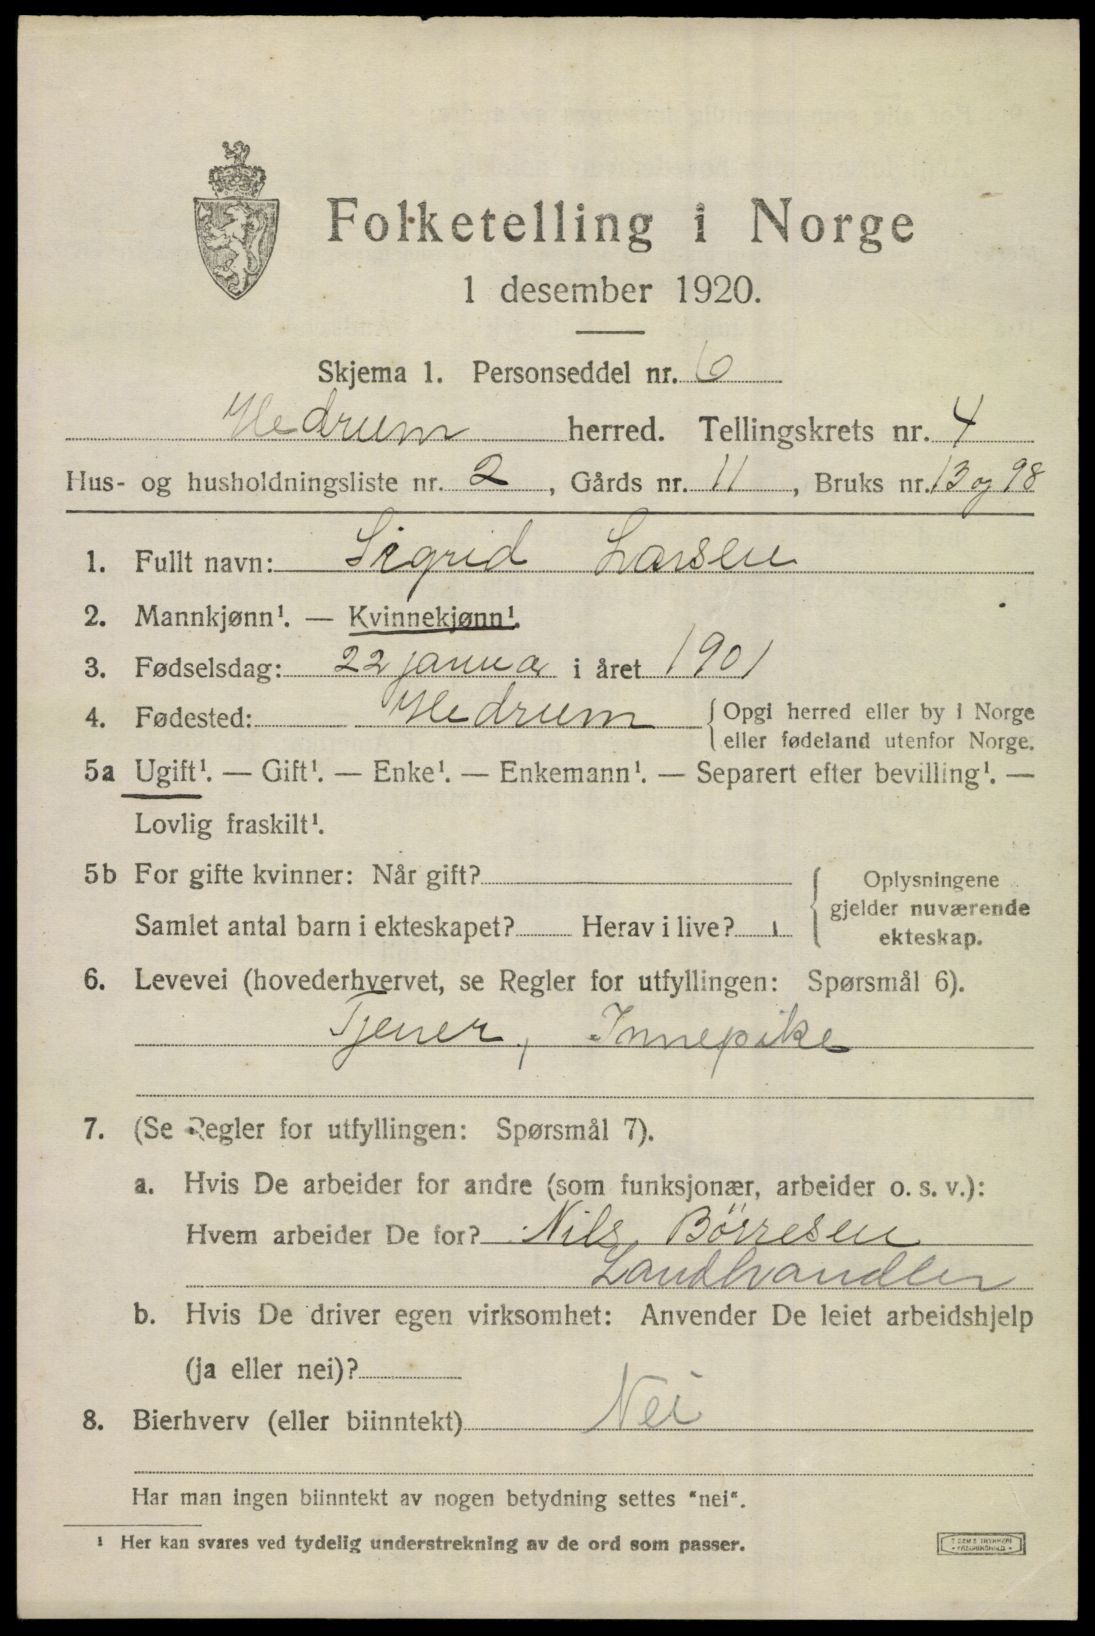 Folketelling i Norge
1 desember 1920.
Skjema 1. Personseddel nr. 6
Hedrum herred. Tellingskrets nr. 4
Hus- og husholdningsliste nr. 2, Gårds nr. 11, Bruks nr. 13 og 98
1. Fullt navn: Sigrid Larsen
2. Mannkjønn¹. — Kvinnekjønn¹.
3. Fødselsdag: 22 januar i året 1901
4. Fødested: Hedrum { Opgi herred eller by i Norge
eller fødeland utenfor Norge.
5a Ugift¹. — Gift¹. — Enke¹. — Enkemann¹. — Separert efter bevilling¹. —
Lovlig fraskilt¹.
5b For gifte kvinner: Når gift?
Samlet antal barn i ekteskapet? Herav i live?
{ Oplysningene
gjelder nuværende
ekteskap.
6. Levevei (hovederhvervet, se Regler for utfyllingen: Spørsmål 6).
Tjener, Innepike
7. (Se Regler for utfyllingen: Spørsmål 7).
a. Hvis De arbeider for andre (som funksjonær, arbeider o. s. v.):
Hvem arbeider De for? Nils Börresen
Landhvandler
b. Hvis De driver egen virksomhet: Anvender De leiet arbeidshjelp
(ja eller nei)?
8. Bierhverv (eller biinntekt) Nei
Har man ingen biinntekt av nogen betydning settes "nei".
¹ Her kan svares ved tydelig understrekning av de ord som passer.